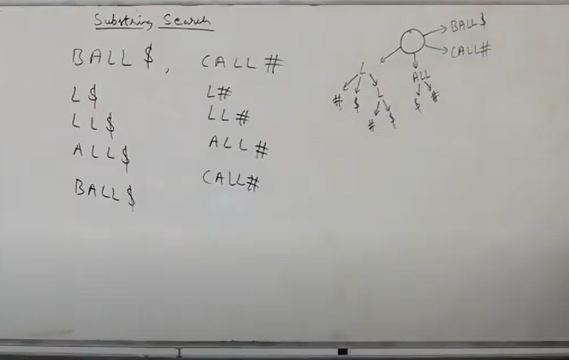 Substring Search
BALL$, CALL#
L$ L#
LL$ LL#
ALL$ ALL#
BALL$ CALL#
BALL$
CALL#
L ALL
# $ L $ #
# $